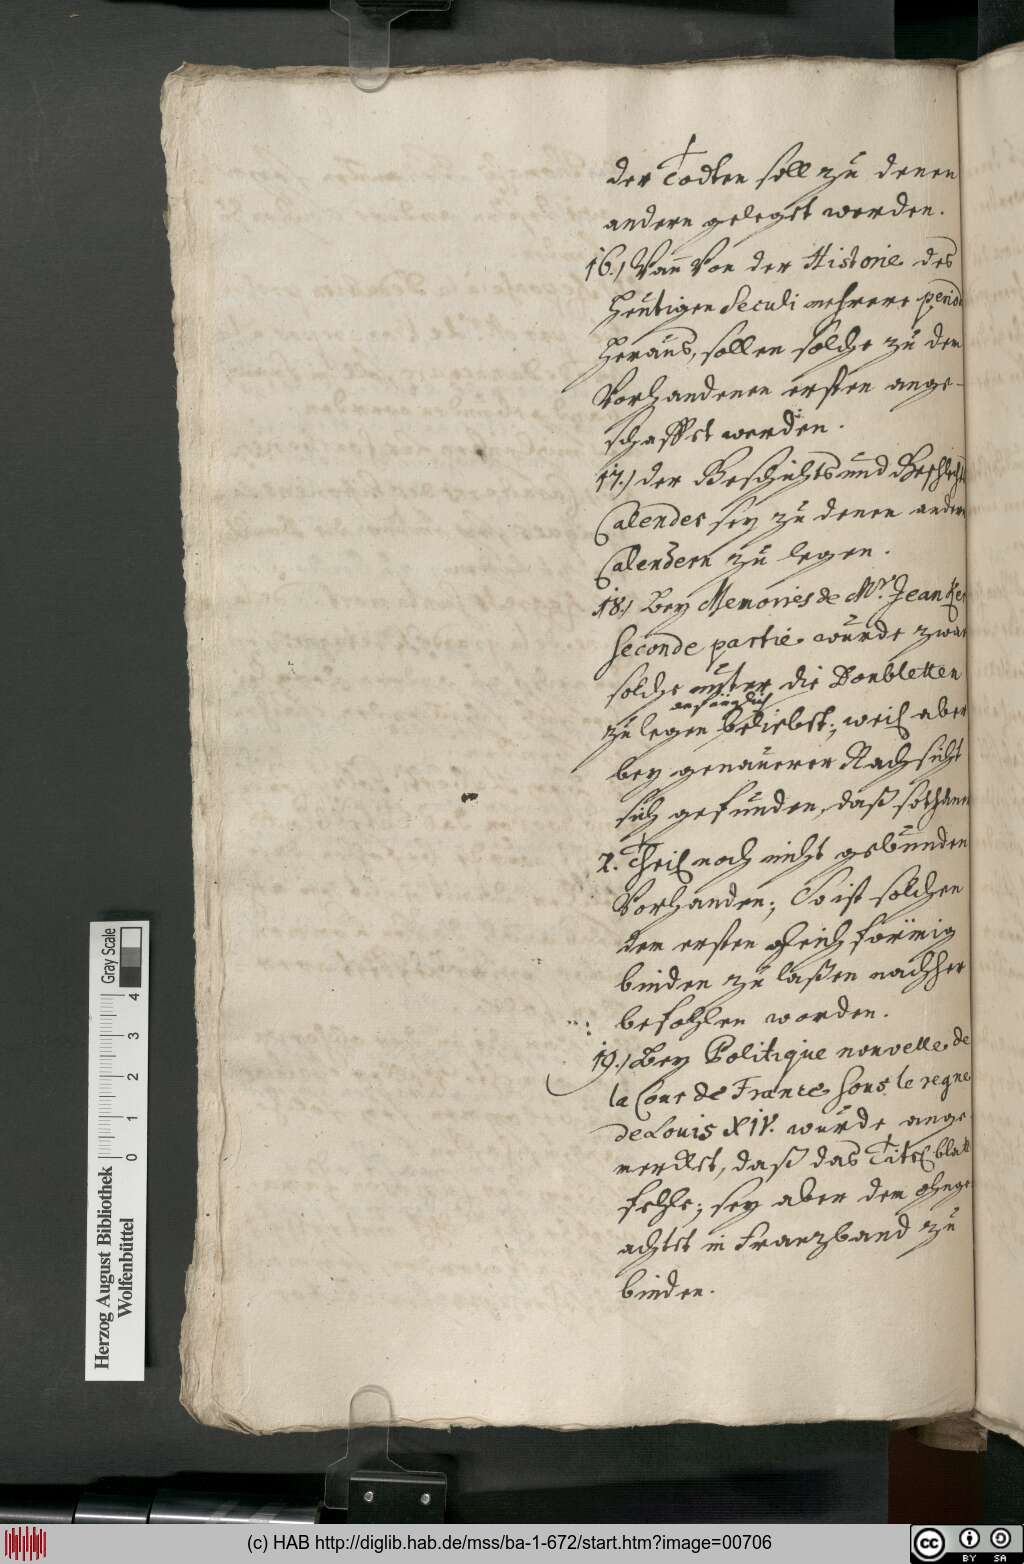 der Todten soll zu denen
andern geleget werden.
16.) Wañ von der Historie des
heutigen Seculi mehrere period
heraus, sollen solche zu den
vorhandenen ersten ange-
schaffet werden.
17.) der Geschichts und Geschlechts
Calender sey zu denen andern
Calendern zu legen.
18.) Bey Memoires de Mr. Jean Ker
seconde partie wurde zwar
solche unter die Doubletten
anfänglich
zu legen beliebet; weil aber
bey genauerer Nachsicht
sich gefunden, daß sothane
2. Theil noch nicht gebunden
vorhanden; So ist solchen
dem ersten gleich förmig
binden zu laßen nachher
befohlen worden.
19.) Bey Politique nouvelle de
la Cour de France sous le regne
de Louis XIV. wurde ange
merckt, daß das Titel blat
fehle; sey aber dem ohnge
achtet in Franzband zu
binden.
Herzog August Bibliothek
Wolfenbüttel
0 1 2 3 4
Gray Scale
(c) HAB http://diglib.hab.de/mss/ba-1-672/start.htm?image=00706
cc BY SA